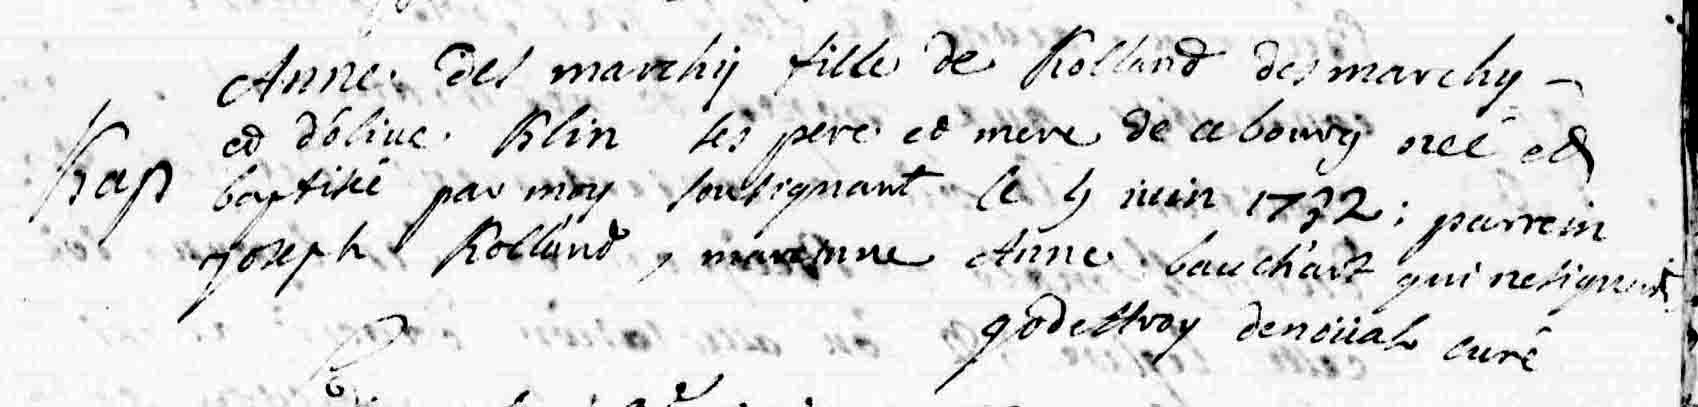 Anne des marchy fille de Rolland desmarchy -
et d'olive Klin ses pere et mere de ce bourg neé et
Bap baptisé par moy sousignant le 4 iuin 1732 ; parrein
joseph Rolland , mareinne Anne bauchart qui ne signent
godeffroy denoual curé